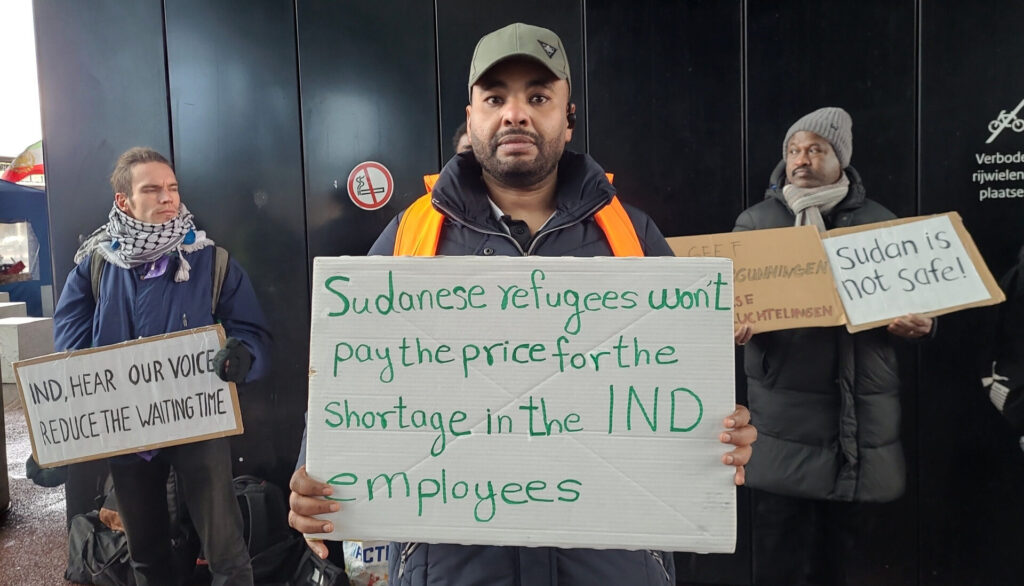 IND, HEAR OUR VOICE
REDUCE THE WAITING TIME
Sudanese refugees won't
pay the price for the
shortage in the IND
employees
GEEF
GUNNINGEN
SE
LUCHTELINGEN
Sudan is
not safe!
Verbode
rijwielen
plaatse
ACTI